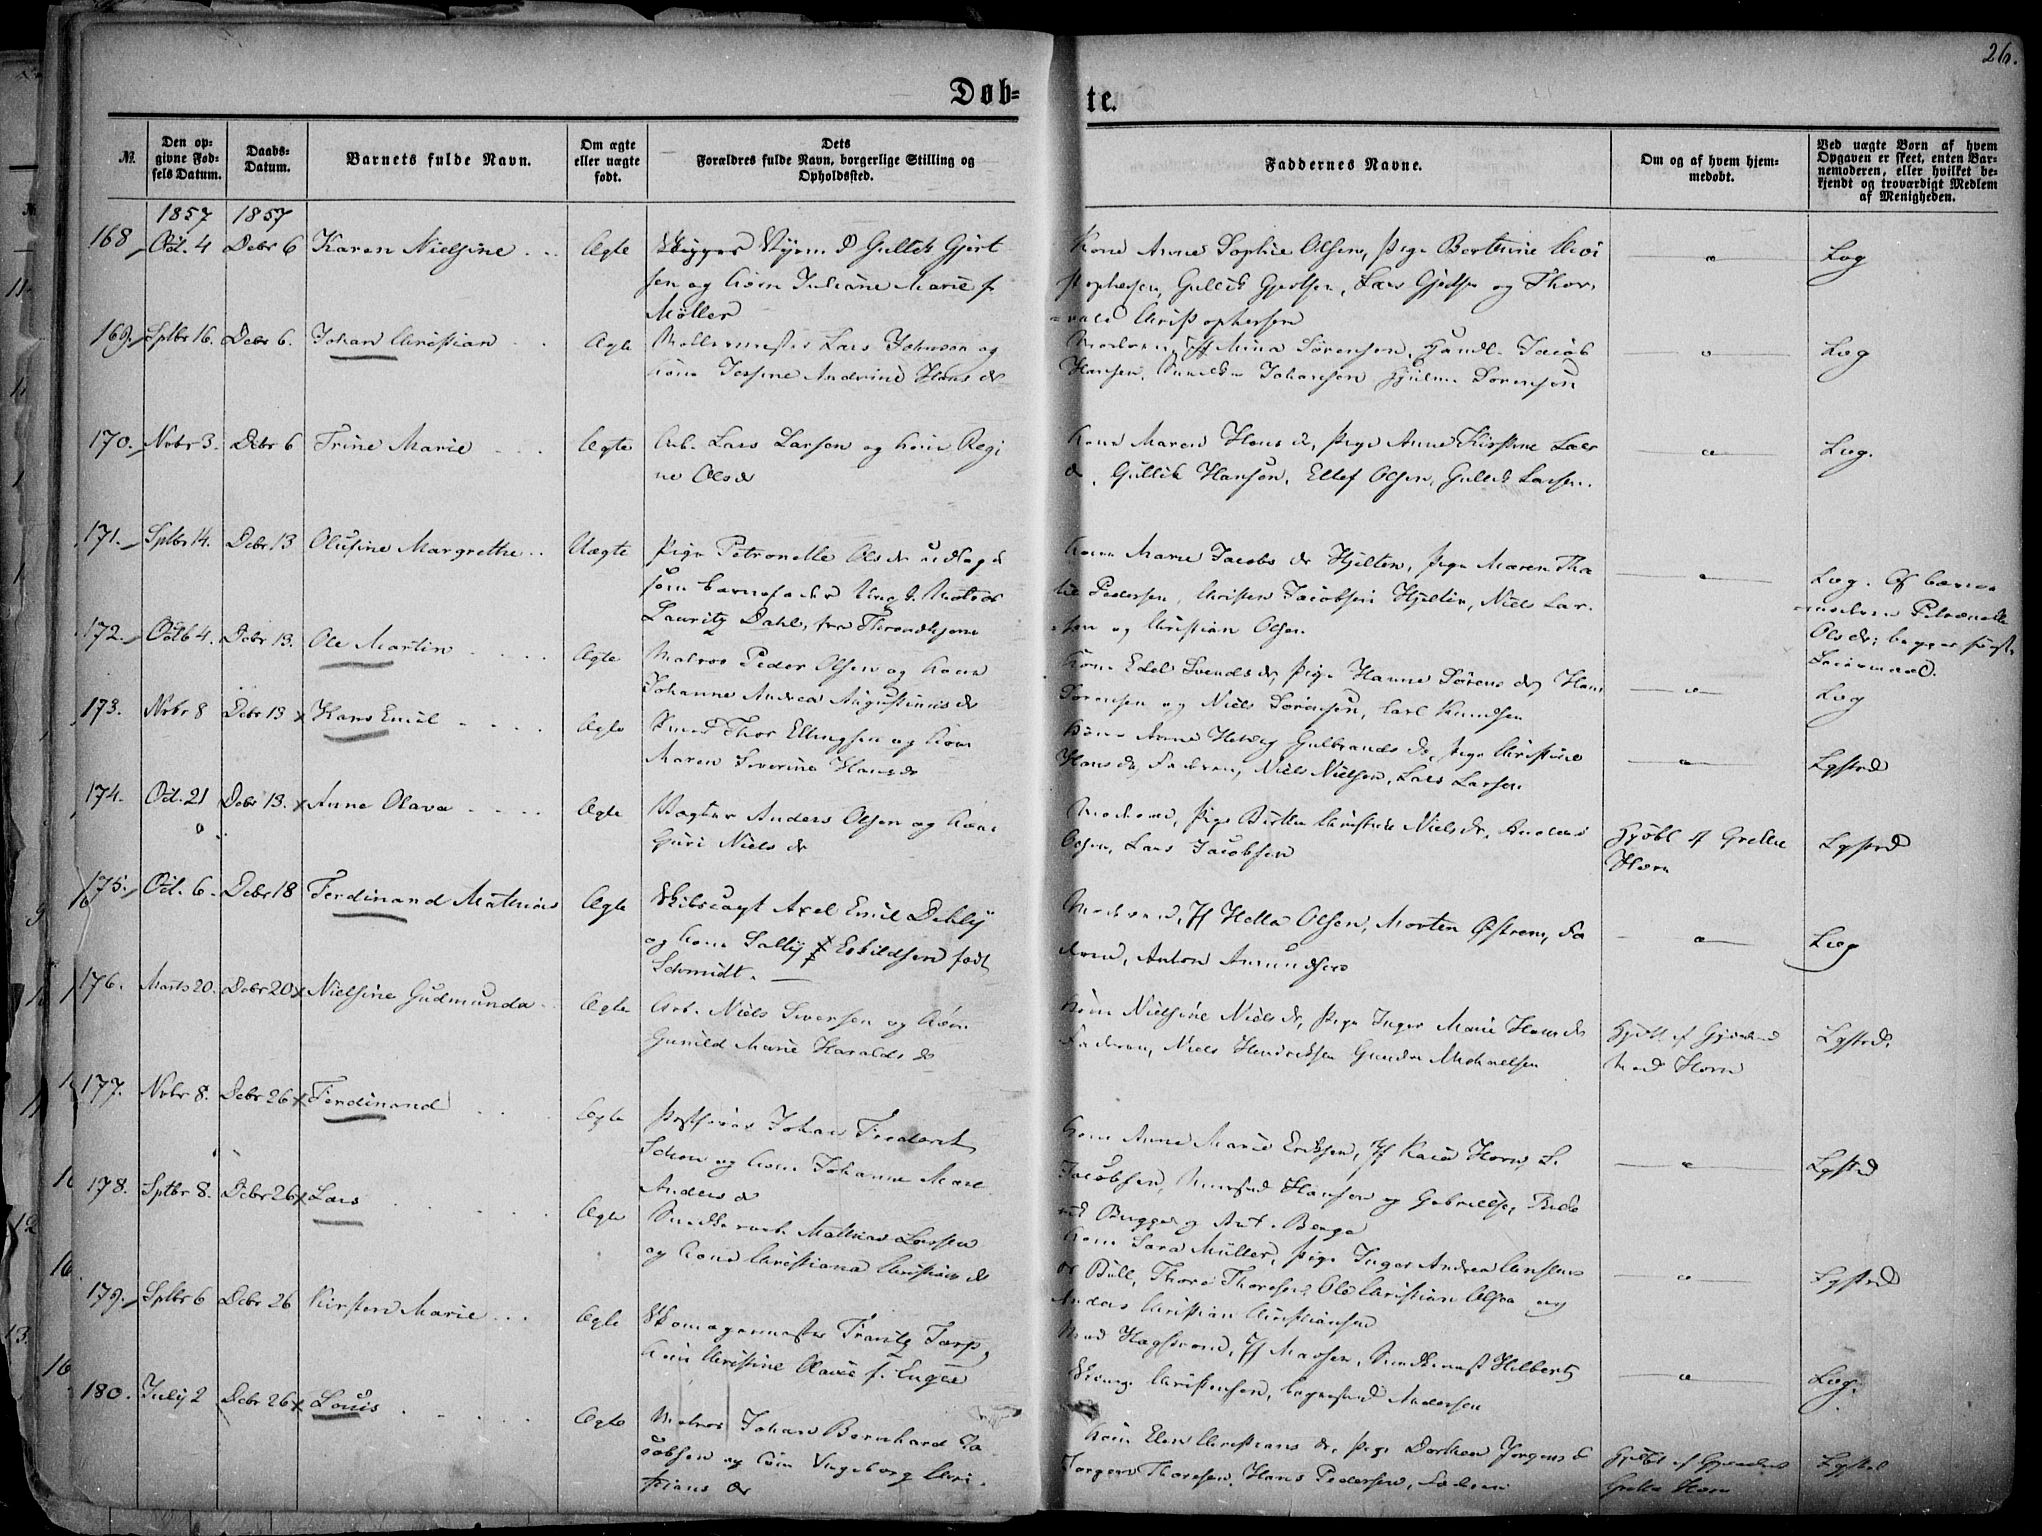 26.
Døb-
te.
№.
Den op-
givne Fød-
sels Datum.
Daabs-
Datum.
Barnets fulde Navn.
Om ægte
eller uægte
født.
Dets
Forældres fulde Navn, borgerlige Stilling og
Opholdssted.
Faddernes Navne.
Om og af hvem hjem-
medøbt.
Ved uægte Børn af hvem
Opgaven er skeet, enten Bar-
nemoderen, eller hvilket be-
kjendt og troværdigt Medlem
af Menigheden.
1857 1857
168 Oct. 4 Debr 6 Karen Nielsine Ægte Gullik Gjert
sen og Kone Juliane Marie f.
Møller
Kone Anne Sophie Olsen, Pige Berthine Chri
stophersen, Gullik Gjertsen, Lars Gjertsen og Thor-
vald Christophersen
Log
169. Sptbr 16. Debr 6. Johan Christian Ægte Møllermester Lars Johnson og
Kone Josefine Andrine Hans dr
Moderen, Jf Mina Sørensen, Handl. Jacob
Hansen, Johansen Sørensen
Log
170. Nvbr 3. Debr 6 Trine Marie Ægte Arb. Lars Larsen og Kone Regi
ne Olsdr
Kone Maren Hans dr, Pige Anne Kirstine Lars
dr, Gullik Hansen, Ellef Olsen, Gullik Larsen.
Log.
171. Sptbr 14. Debr 13 Olufine Margrethe Uægte Pige Petronelle Olsdr udlagt
som Barnefader Ung k. Matros
Lauritz Dahl, fra Throndhjem
Kone Marie Jacobs dr Hjelten, Pige Maren Tha
lie Pedersen, Christen Jacobsen Hjelten, Niels Lar-
sen og Christian Olsen
Log. Af Barne
moderen Petronelle
Olsdr; begges første
Leiermaal.
172. Octb 4. Debr 13. Ole Martin Ægte Matros Peder Olsen og Kone
Johanne Andrea Augustinus dr
Kone Edel Svends dr, Pige Hanne Sørens dr, Hans
Sørensen og Niels Sørensen, Carl Knudsen
Log
173. Nvbr 8 Debr 13 x Hans Emil Ægte Smed Thor Ellingsen og Kone
Maren Severine Hansdr
Kone Anne Hedvig Gulbrands dr, Pige Christine
Hans dr, Faderen, Niels Nielsen, Lars Larsen
Lysted
174. Oct. 21 Debr 13. x Anne Olava Ægte Vægter Anders Olsen og Kone
Guri Niels dr
Moderen, Pige Birthe Christine Niels dr, Anders
Olsen, Lars Jacobsen
Hjdbt af Grethe
Horn
Lysted
175. Oct. 6. Debr 18 Ferdinand Mathias Ægte Axel Emil Dehly
og Kone Sally Eskildsen født
Schmidt.
Moderen, Jf Hella Olsen, Morten Østrem, Fa
deren, Anton Amundsen
Log
176. Marts 20. Debr 20 x Nielsine Gudmunda Ægte Arb. Niels Iversen og Kone
Gunild Marie Haralds dr
Kone Nielsine Niels dr, Pige Inger Marie Hans dr
Faderen, Niels Hendriksen Gunder Michaelsen
Hjdbt af Gjordemod
Horn
Lysted.
177. Nvbr 8. Debr 26 x Ferdinand Ægte Johan Frederik
Schou og Kone Johanne Mar.
Anders dr
Kone Anne Marie Eriksen, Jf Kaia Horn, L.
Jacobsen, Hansen og Gabrielsen, Fride
rik Bugge og Ant. Berge
Lysted
178. Sptbr 8. Debr 26 x Lars Ægte Mathias Larsen
og Kone Christiana Christians dr
Kone Sara Müller, Pige Inger Andrea
Bull, Thore Thoresen, Ole Christian Olsen og
Anders Christian Christiansen
Lysted
179. Sptbr 6 Debr 26 Kirsten Marie Ægte Skomagermester Frantz Tarp,
Kone Christine Olava f. Engen
Mad Hagstrøm, Jf Madsen, Hilbert,
Christensen, Andersen
Log.
180. July 2 Debr 26 x Louis Ægte Matros Johan Bernhard Ja
cobsen og Kone Ingeborg Chri-
stians dr
Kone Elen Christians dr, Pige Dorthea Jørgens d
Jørgen Thoresen, Hans Pedersen, Faderen
Hjdbt af
Grethe Horn
Lysted